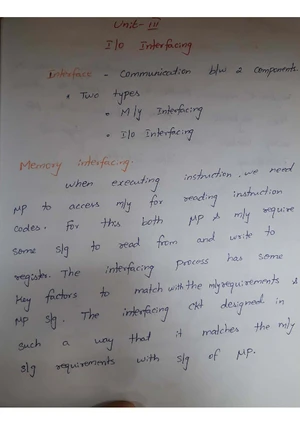 Unit-III
I/o Interfacing
Interface - Communication b/w 2 components
• Two types
• M/y Interfacing
• I/o Interfacing
Memory interfacing.
When executing instruction. we need
MP to access m/y for reading instruction
codes. For this both MP & m/y require
some s/g to read from and write to
register. The interfacing process has some
key factors to match with the m/y requirements &
MP s/g. The interfacing ckt designed in
such a way that it matches the m/y
s/g requirements with s/g of MP.